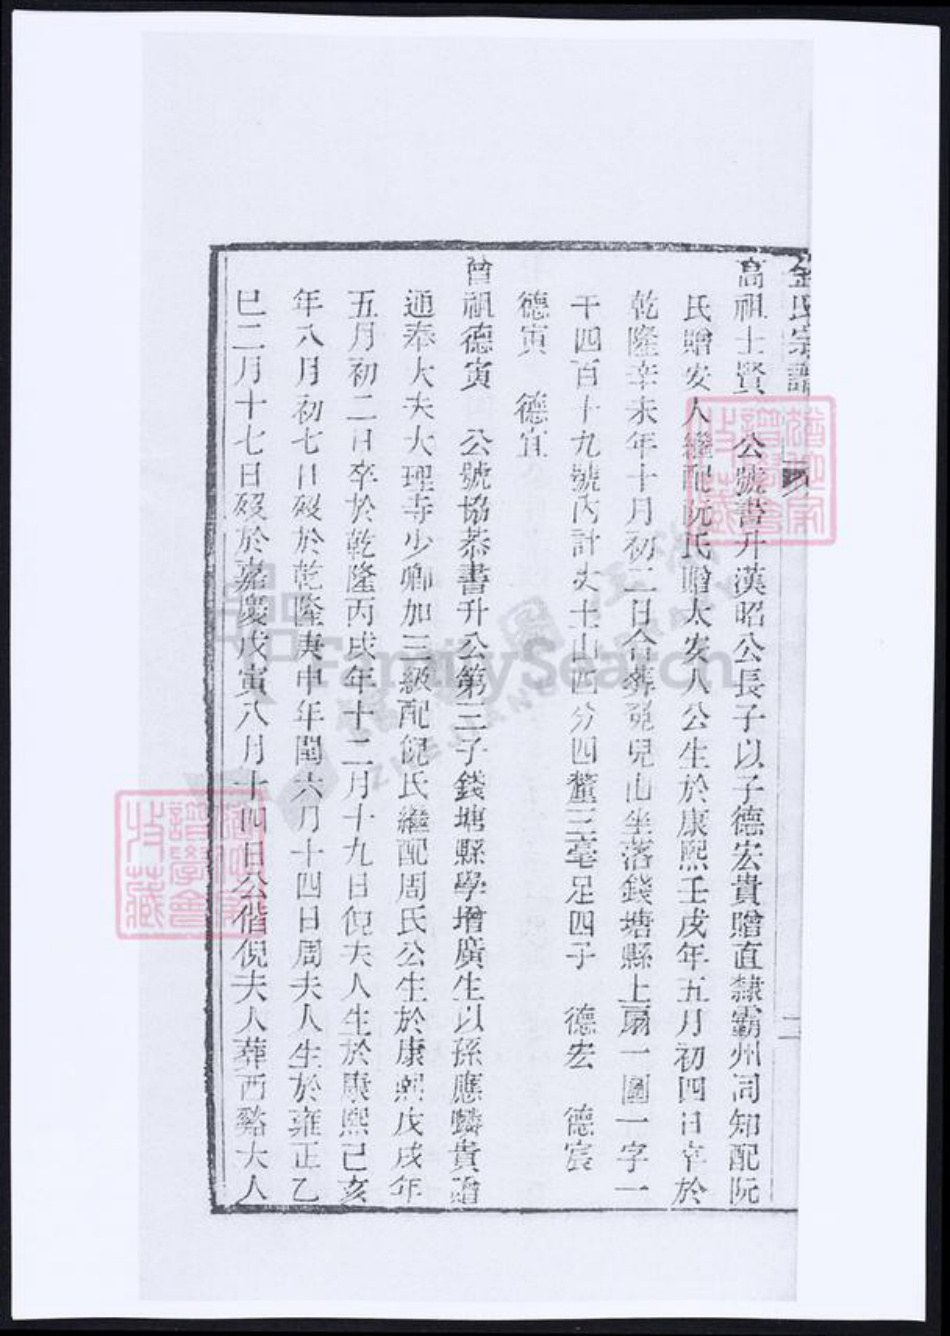 金氏宗譜
二
高祖士賢 公號書升漢昭公長子以子德宏貴贈直隸霸州同知配阮
氏贈安人繼配阮氏贈太安人公生於康熙壬戌年五月初四日卒於
乾隆辛未年十月初二日合葬 兒山坐落錢塘縣上扇一圖一字一
千四百十九號內計丈土山四分四釐三毫足四子 德宏 德宸
德寅 德宜
曾祖德寅 公號協恭書升公第三子錢塘縣學增廣生以孫應麟貴贈
通奉大夫大理寺少卿加三級配倪氏繼配周氏公生於康熙戊戌年
五月初二日卒於乾隆丙戌年十二月十九日倪夫人生於康熙己亥
年八月初七日歿於乾隆庚申年閏六月十四日周夫人生於雍正乙
巳二月十七日歿於嘉慶戊寅八月十四日公偕倪夫人葬西谿大人
FamilySearch